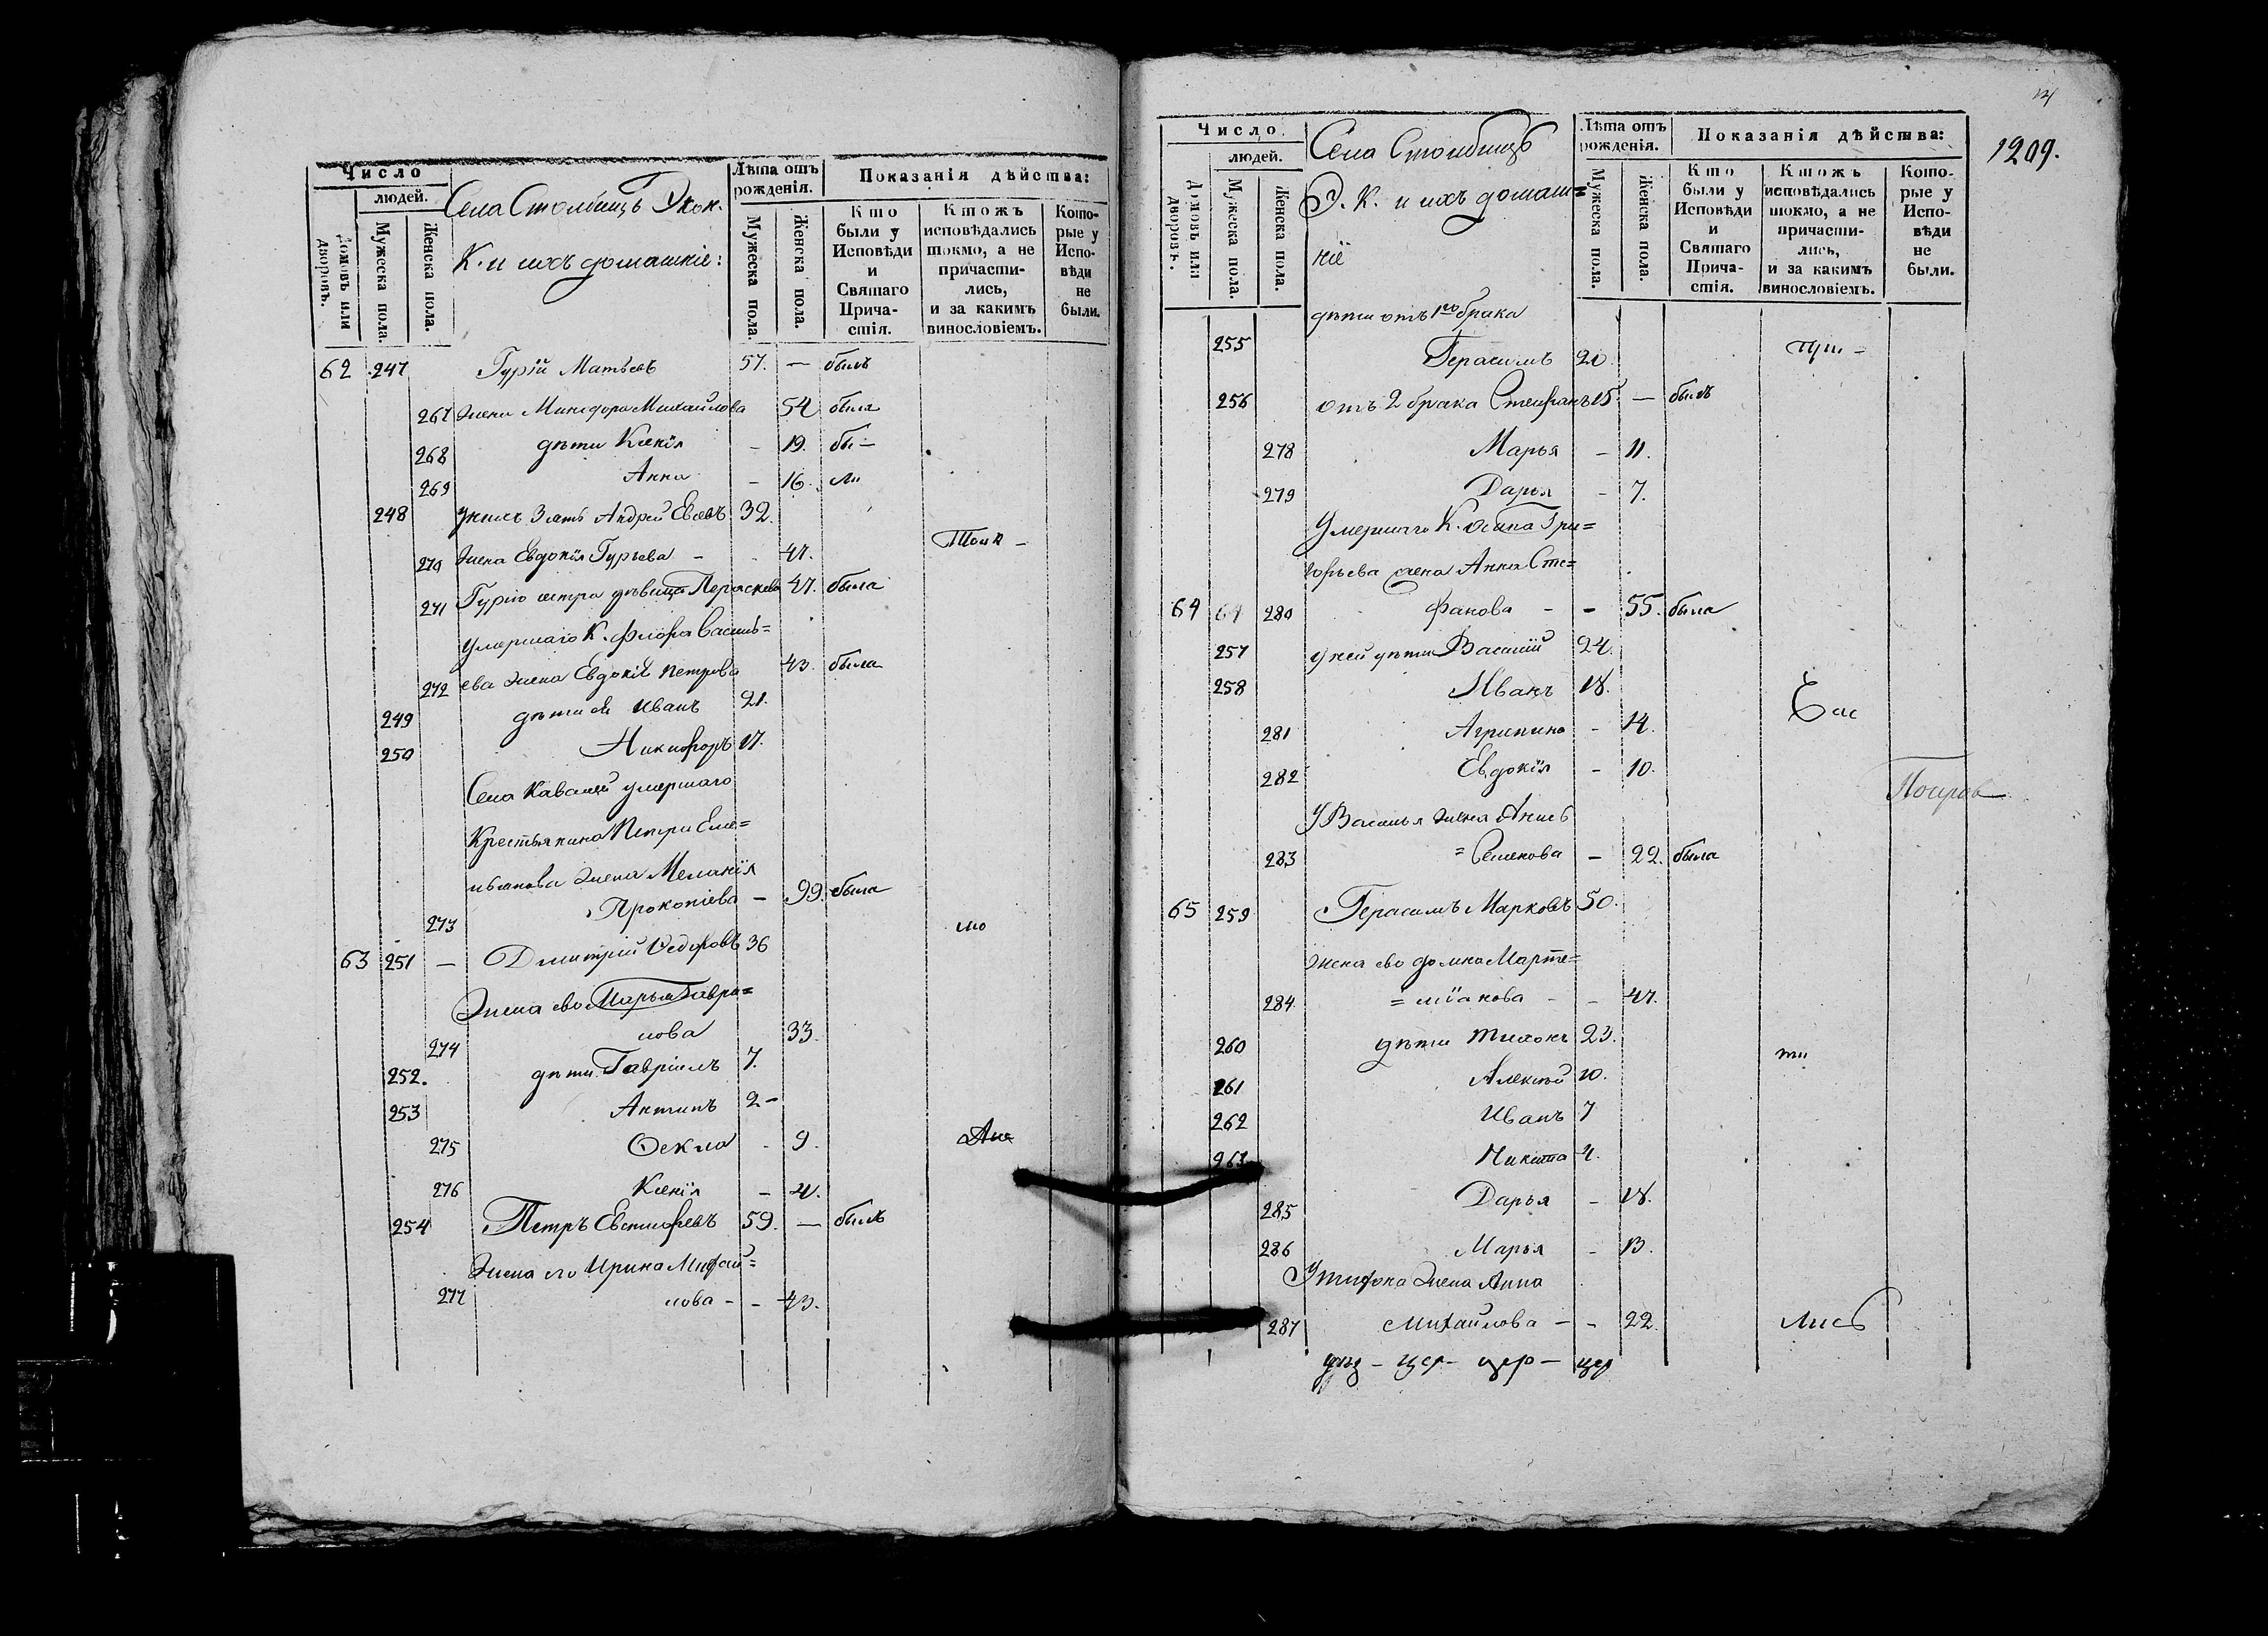 Число
людей.
Домовъ или дворовъ.
Мужеска пола.
Женска пола.
Села Столбищъ Экон.
К. и ихъ домашніе:
Лѣта отъ рожденія.
Мужеска пола.
Женска пола.
Показанія дѣйства:
Кто были у Исповѣди и Святаго Причастія.
Ктожъ исповѣдались токмо, а не причастились, и за какимъ винословіемъ.
Которые у Исповѣди не были.
62 247 Гурій Матѣевъ 57. — былъ
267 жена Минодора Михайлова 54 была
268 дѣти Ксенія - 19. бы —
269 Анна - 16. ли
248 у нихъ Зять Андрей 32.
270 жена Евдокія Гурьева - - 47. Толк -
271 Гурію сестра дѣвица Параскева 47. была
умершаго К. Флора Василь=
272 ева жена Евдокія Петрова 43. была
249 дѣти ея Иванъ 21.
250 Никифоръ 17.
Села умершаго
Крестьянина Петра Еме=
льянова жена Меланія
273 Прокопіева - 99. была
мо
63 251 — Дмитрій Ѳедоровъ 36
Жена ево Марья Гаври=
274 лова 33.
252. дѣти Гавріилъ 7.
253 Антипъ 2 -
275 Ѳекла - 9.
276 Ксенія - 4.
254 Петръ Евстифеевъ 59. — былъ
Жена его Ирина Михай=
277 лова - - 43.
1209.
Число
людей.
Домовъ или дворовъ.
Мужеска пола.
Женска пола.
Села Столбищъ
Э. К. и ихъ домаш=
ніе
Лѣта отъ рожденія.
Мужеска пола.
Женска пола.
Показанія дѣйства:
Кто были у Исповѣди и Святаго Причастія.
Ктожъ исповѣдались токмо, а не причастились, и за какимъ винословіемъ.
Которые у Исповѣди не были.
дѣти отъ 1го брака
255 Герасимъ 20
256 отъ 2 брака Стефанъ 15. — былъ
278 Марья - 11.
279 Дарья - 7.
Умершаго К. Осипа Гри=
горьева жена Анна Сте=
64 64 280 фанова - - 55. была
257 у ней дѣти Василій 24.
258 Иванъ 18.
281 Агрипина - 14.
282 Евдокія - 10.
У Василья жена Анись
283 = Семенова - 22. была
65 259 Герасимъ Марковъ 50.
жена ево Домна Марте=
284 = міанова - - 47.
260 дѣти Тихонъ 23.
261 Алексѣй 10.
262 Иванъ 7
263 Никита 4.
285 Дарья - 18.
286 Марья - 13.
У Тихона жена Анна
287 Михайлова - - 22. лись